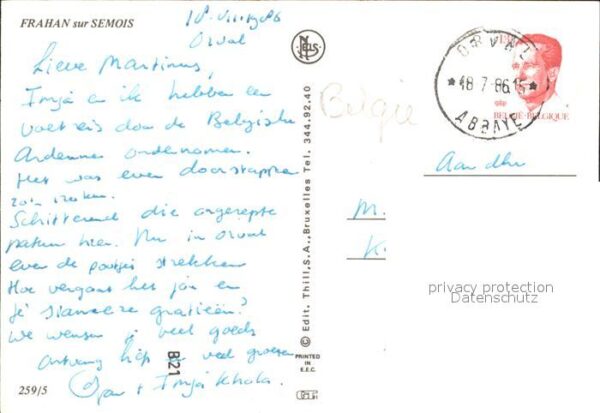 FRAHAN sur SEMOIS
18-VII-1986
Orval
Lieve Martinus,
en ik hebben een
voetreis door de Belgische
Ardennen ondernomen.
Het was even doorstappen
Schitterend die ongerepte
natuur hier. Nu in Orval
even de pootjes strekken
Hoe vergaat het jou en
je Siamese gratieën?
We wensen je veel goeds
Ontvang veel groeten
België
NELS
© Edit. Thill, S.A., Bruxelles Tel. 344.92.40
B21
PRINTED
IN
E.E.C.
259/5
ORVAL
18-7-86.15
ABBAYE
BELGIË-BELGIQUE
Aan dhr
M.
K
privacy protection
Datenschutz